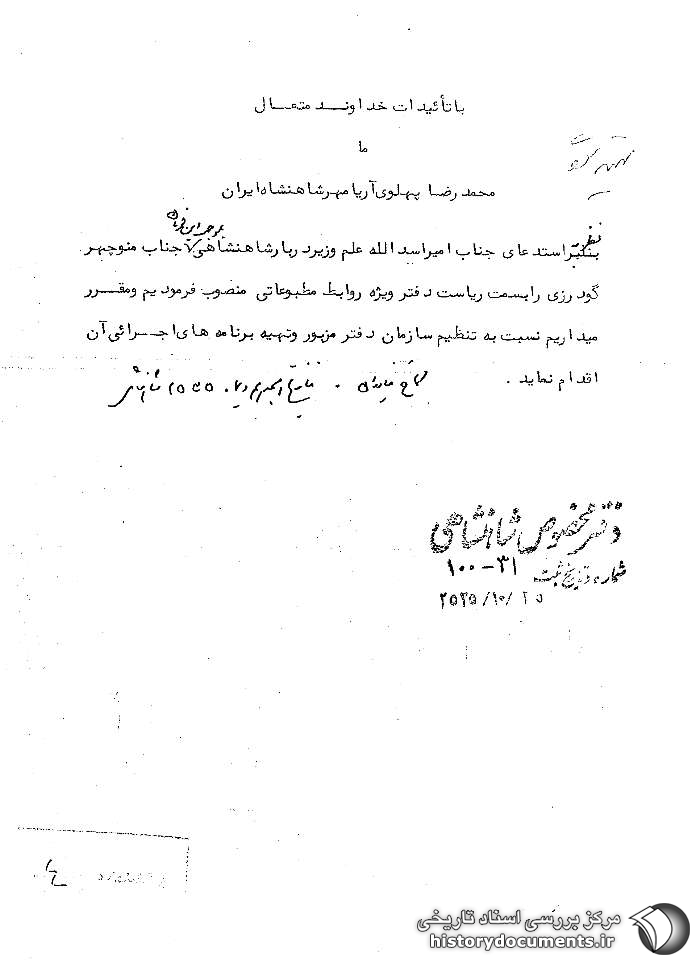 با تأئیدات خداوند متعال
ما
محمد رضا پهلوی آریامهر شاهنشاه ایران
بموجب این فرمان
نظر
بنابر استدعای جناب امیر اسد الله علم وزیر دربار شاهنشاهی جناب منوچهر
گودرزی را بسمت ریاست دفتر ویژه روابط مطبوعاتی منصوب فرمودیم و مقرر
میداریم نسبت به تنظیم سازمان دفتر مزبور و تهیه برنامه های اجرائی آن
اقدام نماید .
کاخ
دفتر مخصوص شاهنشاهی
شماره و تاریخ ثبت ۳۱-۱۰۰
۲۵۳۵/۱۰/۲۵
مرکز بررسی اسناد تاریخی
historydocuments.ir